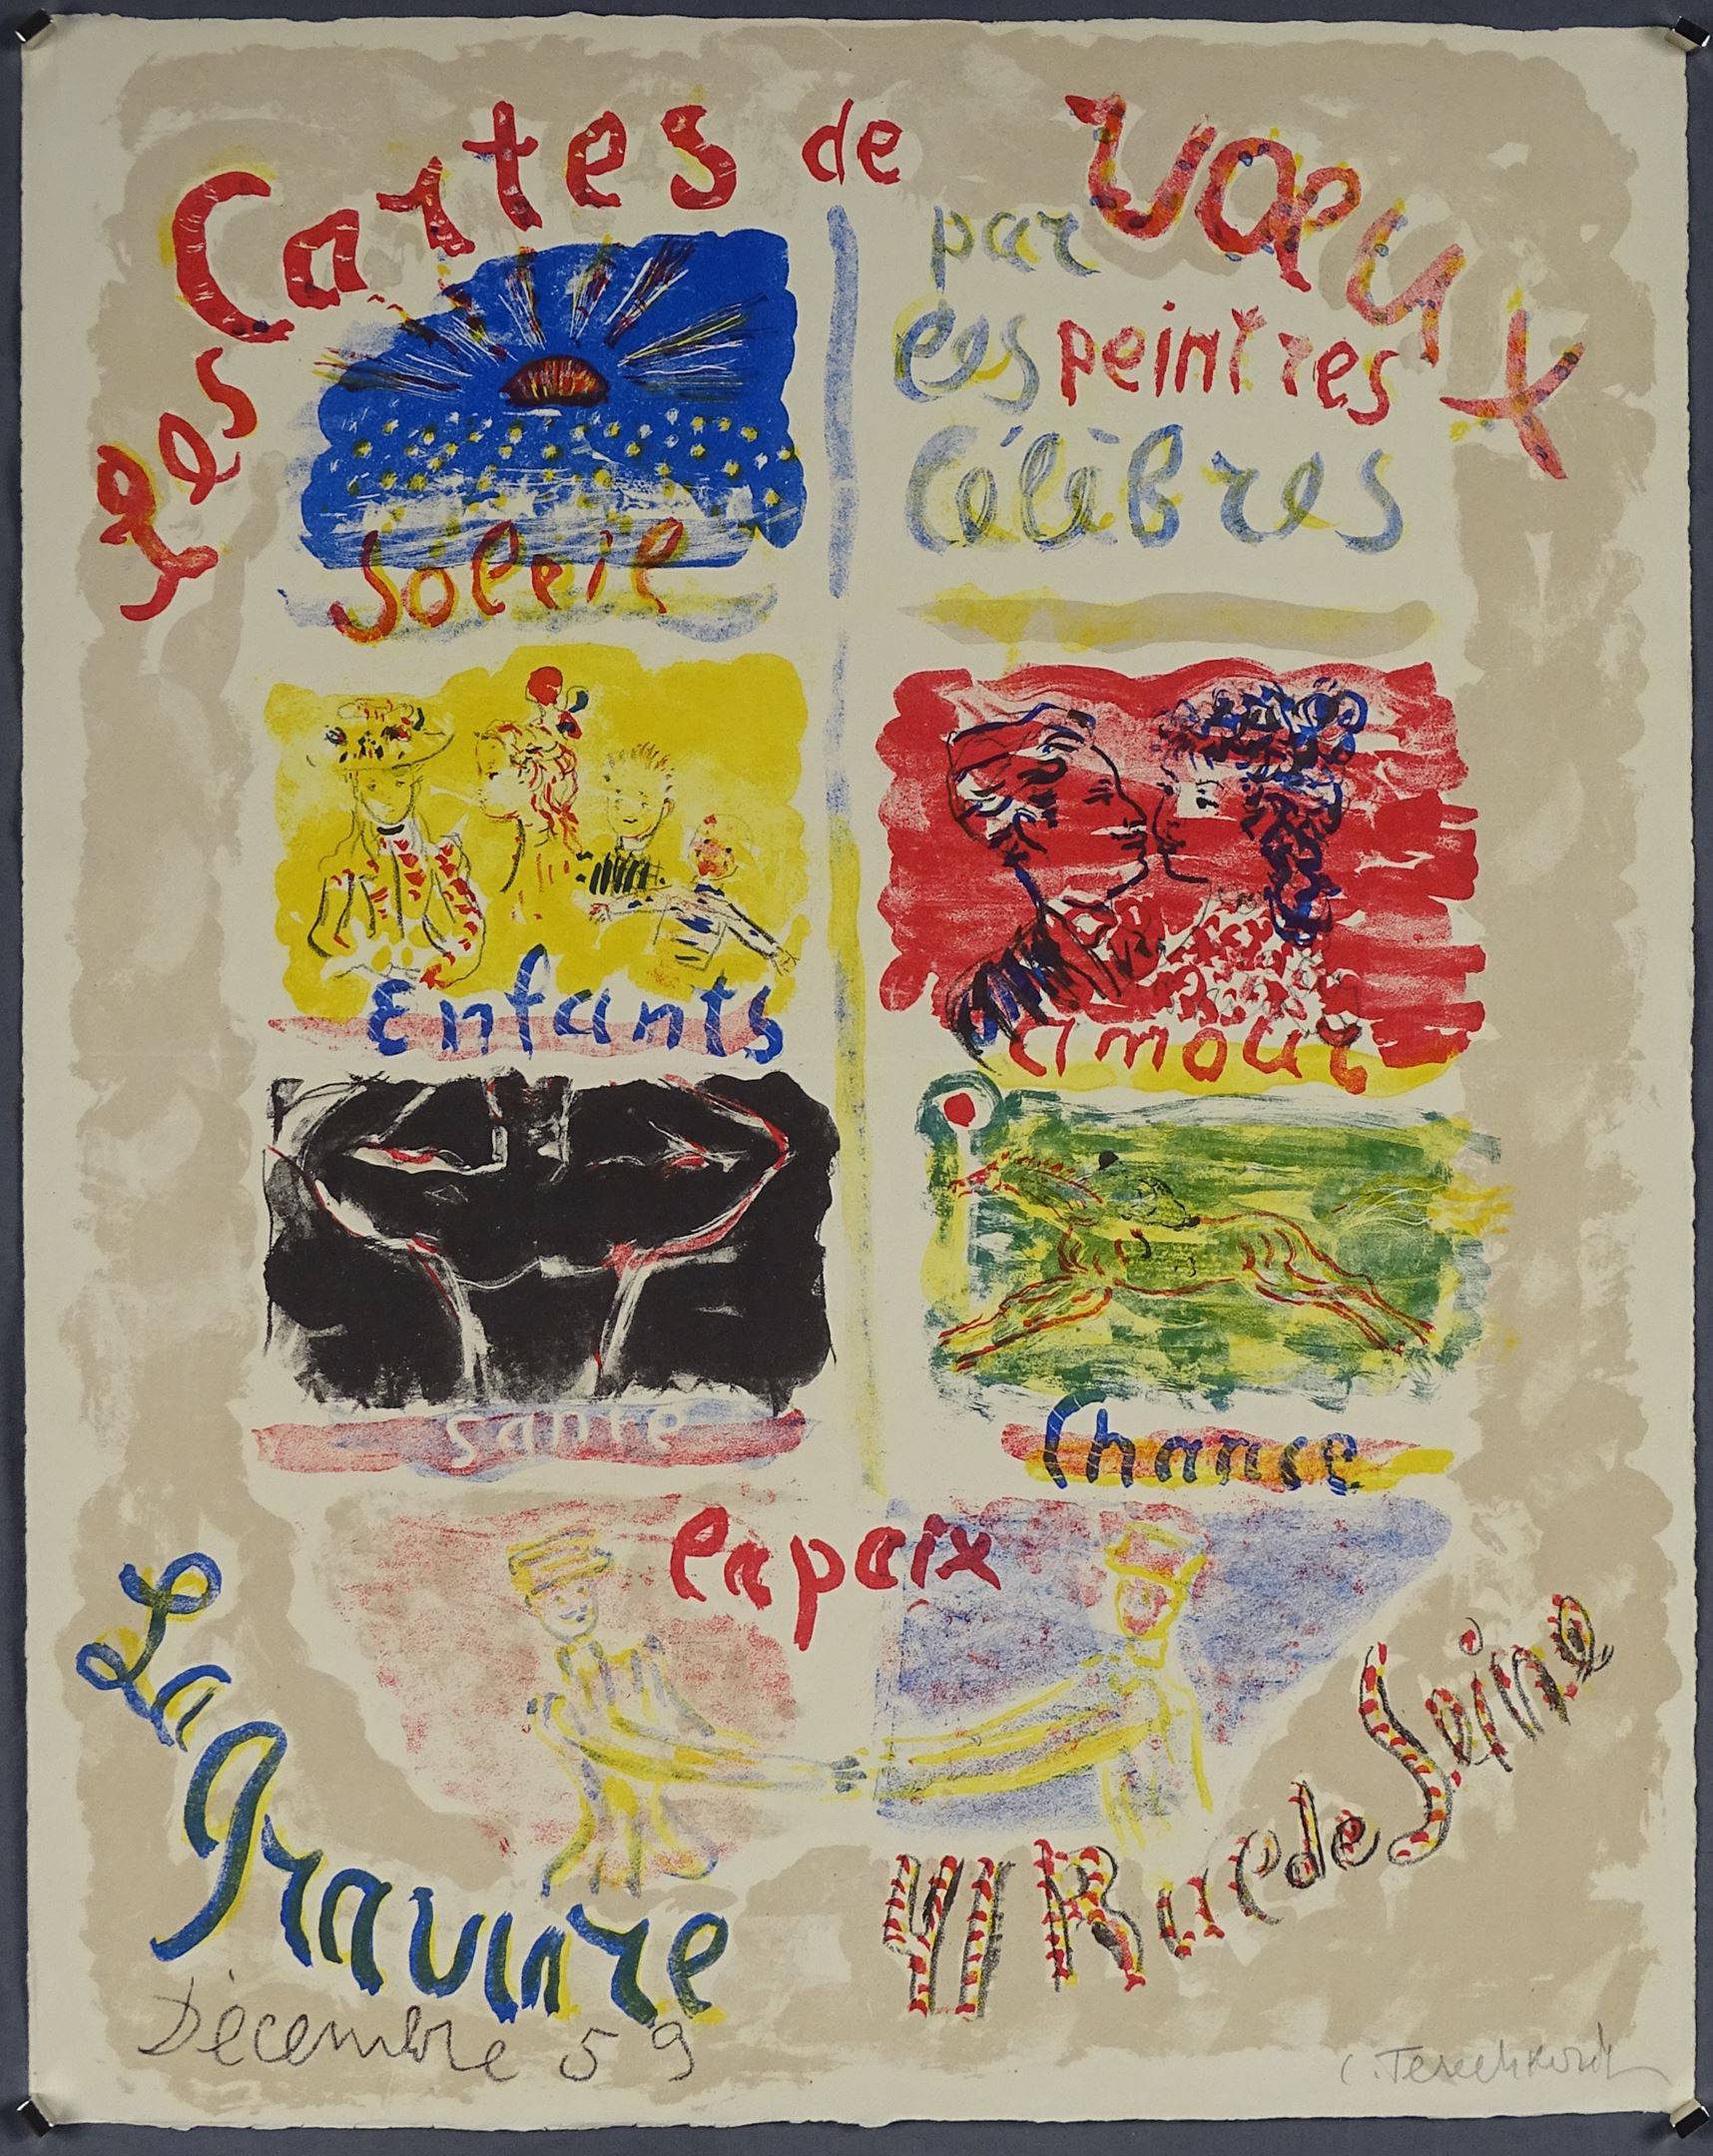 Les Cartes de Vœux
par
les peintres
Célèbres
Soleil
Enfants
amour
santé
Chance
la paix
La Gravure
41 Rue de Seine
Décembre 59
C. Terechkovitch